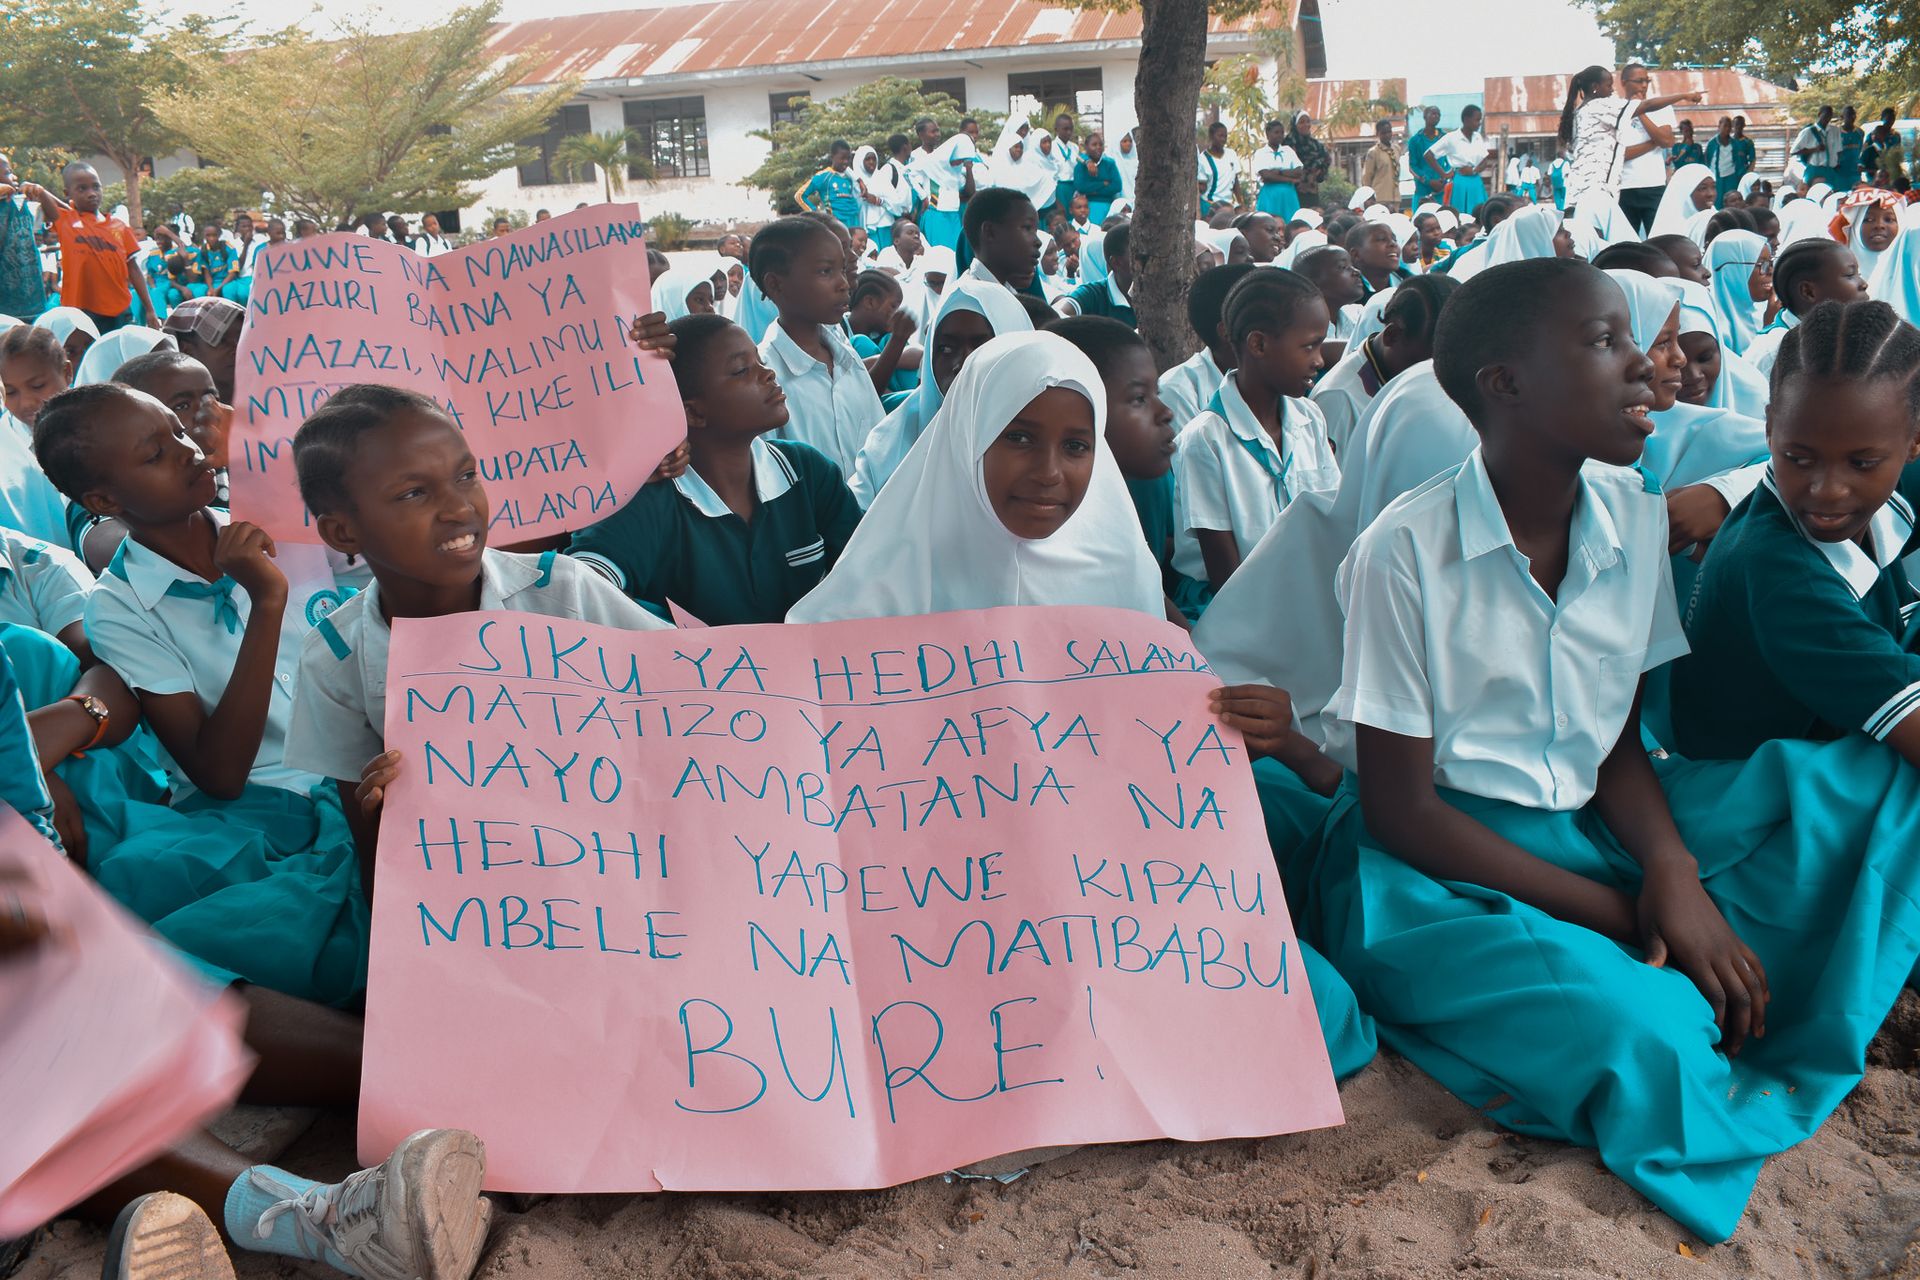 KUWE NA MAWASILIANO
MAZURI BAINA YA
WAZAZI, WALIMU
KIKE ILI
SIKU YA HEDHI SALAMA
MATATIZO YA AFYA YA
NAYO AMBATANA NA
HEDHI YAPEWE KIPAU
MBELE NA MATIBABU
BURE!